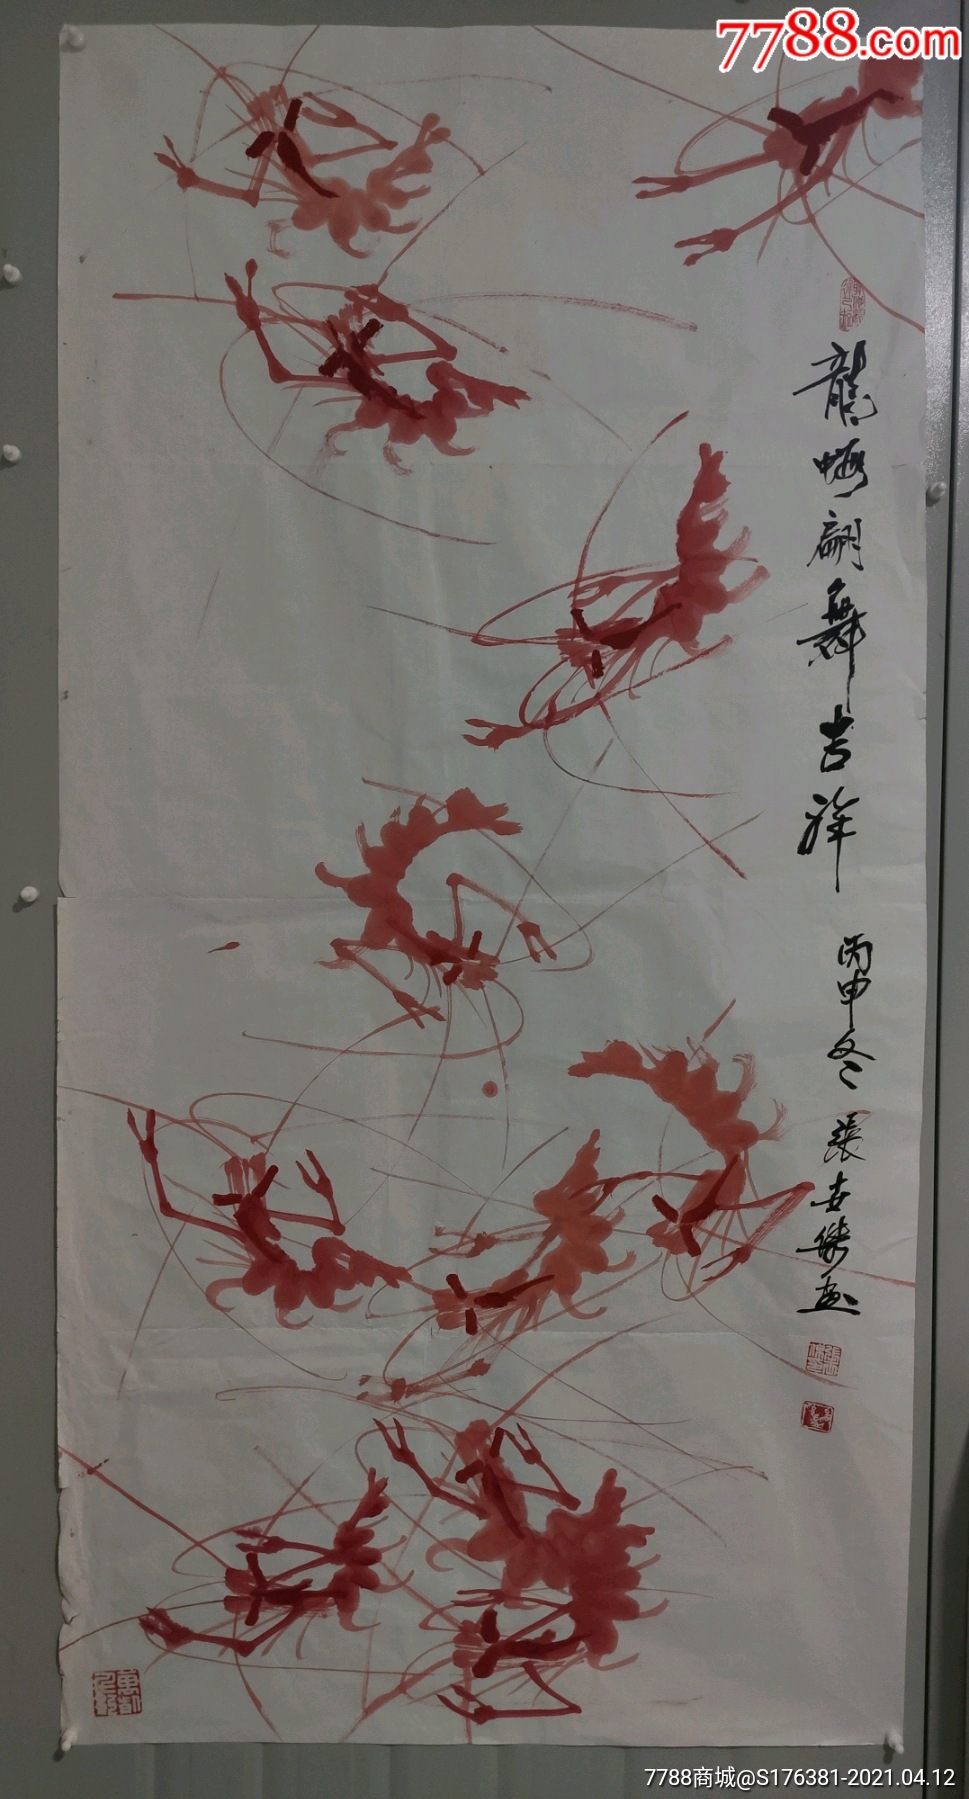 7788.com
龍蝦翩舞吉祥
丙申冬
張世傑画
7788商城@S176381-2021.04.12